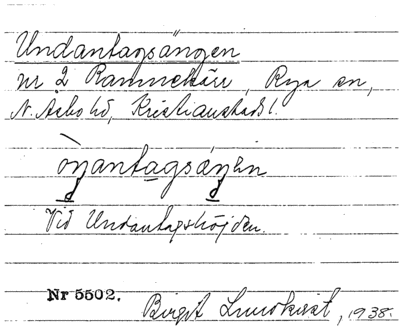 Undantagsängen
nr 2 Rammekärr, Rya sn,
N. Åsbo hd, Kristianstads l.
Vid Undantagshöjden.
Nr 5502.
Birgit Lundkvist, 1938.